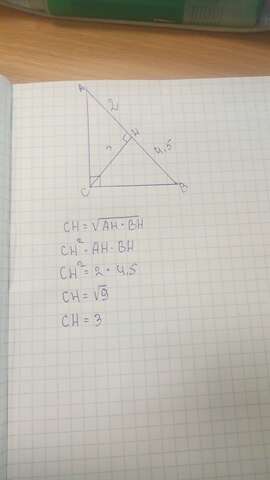 A
2
H
?
4,5
C
B
CH = √AH · BH
CH² = AH · BH
CH² = 2 · 4,5
CH = √9
CH = 3